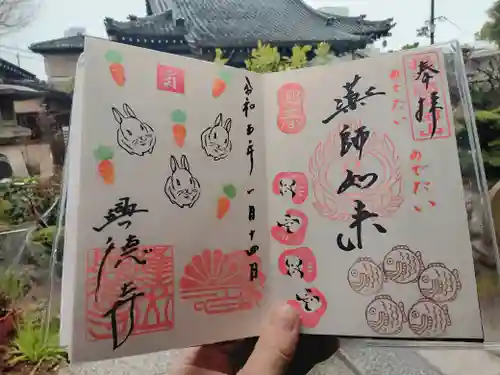 奉拝
めでたい
めでたい
薬師如来
令和五年一月十四日
興德寺